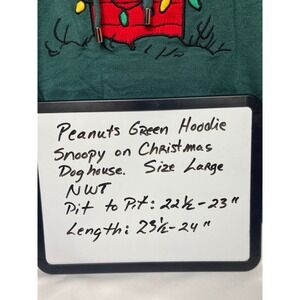 Peanuts Green Hoodie
Snoopy on Christmas
Doghouse. Size Large
NWT
Pit to Pit: 22½-23"
Length: 23½-24"